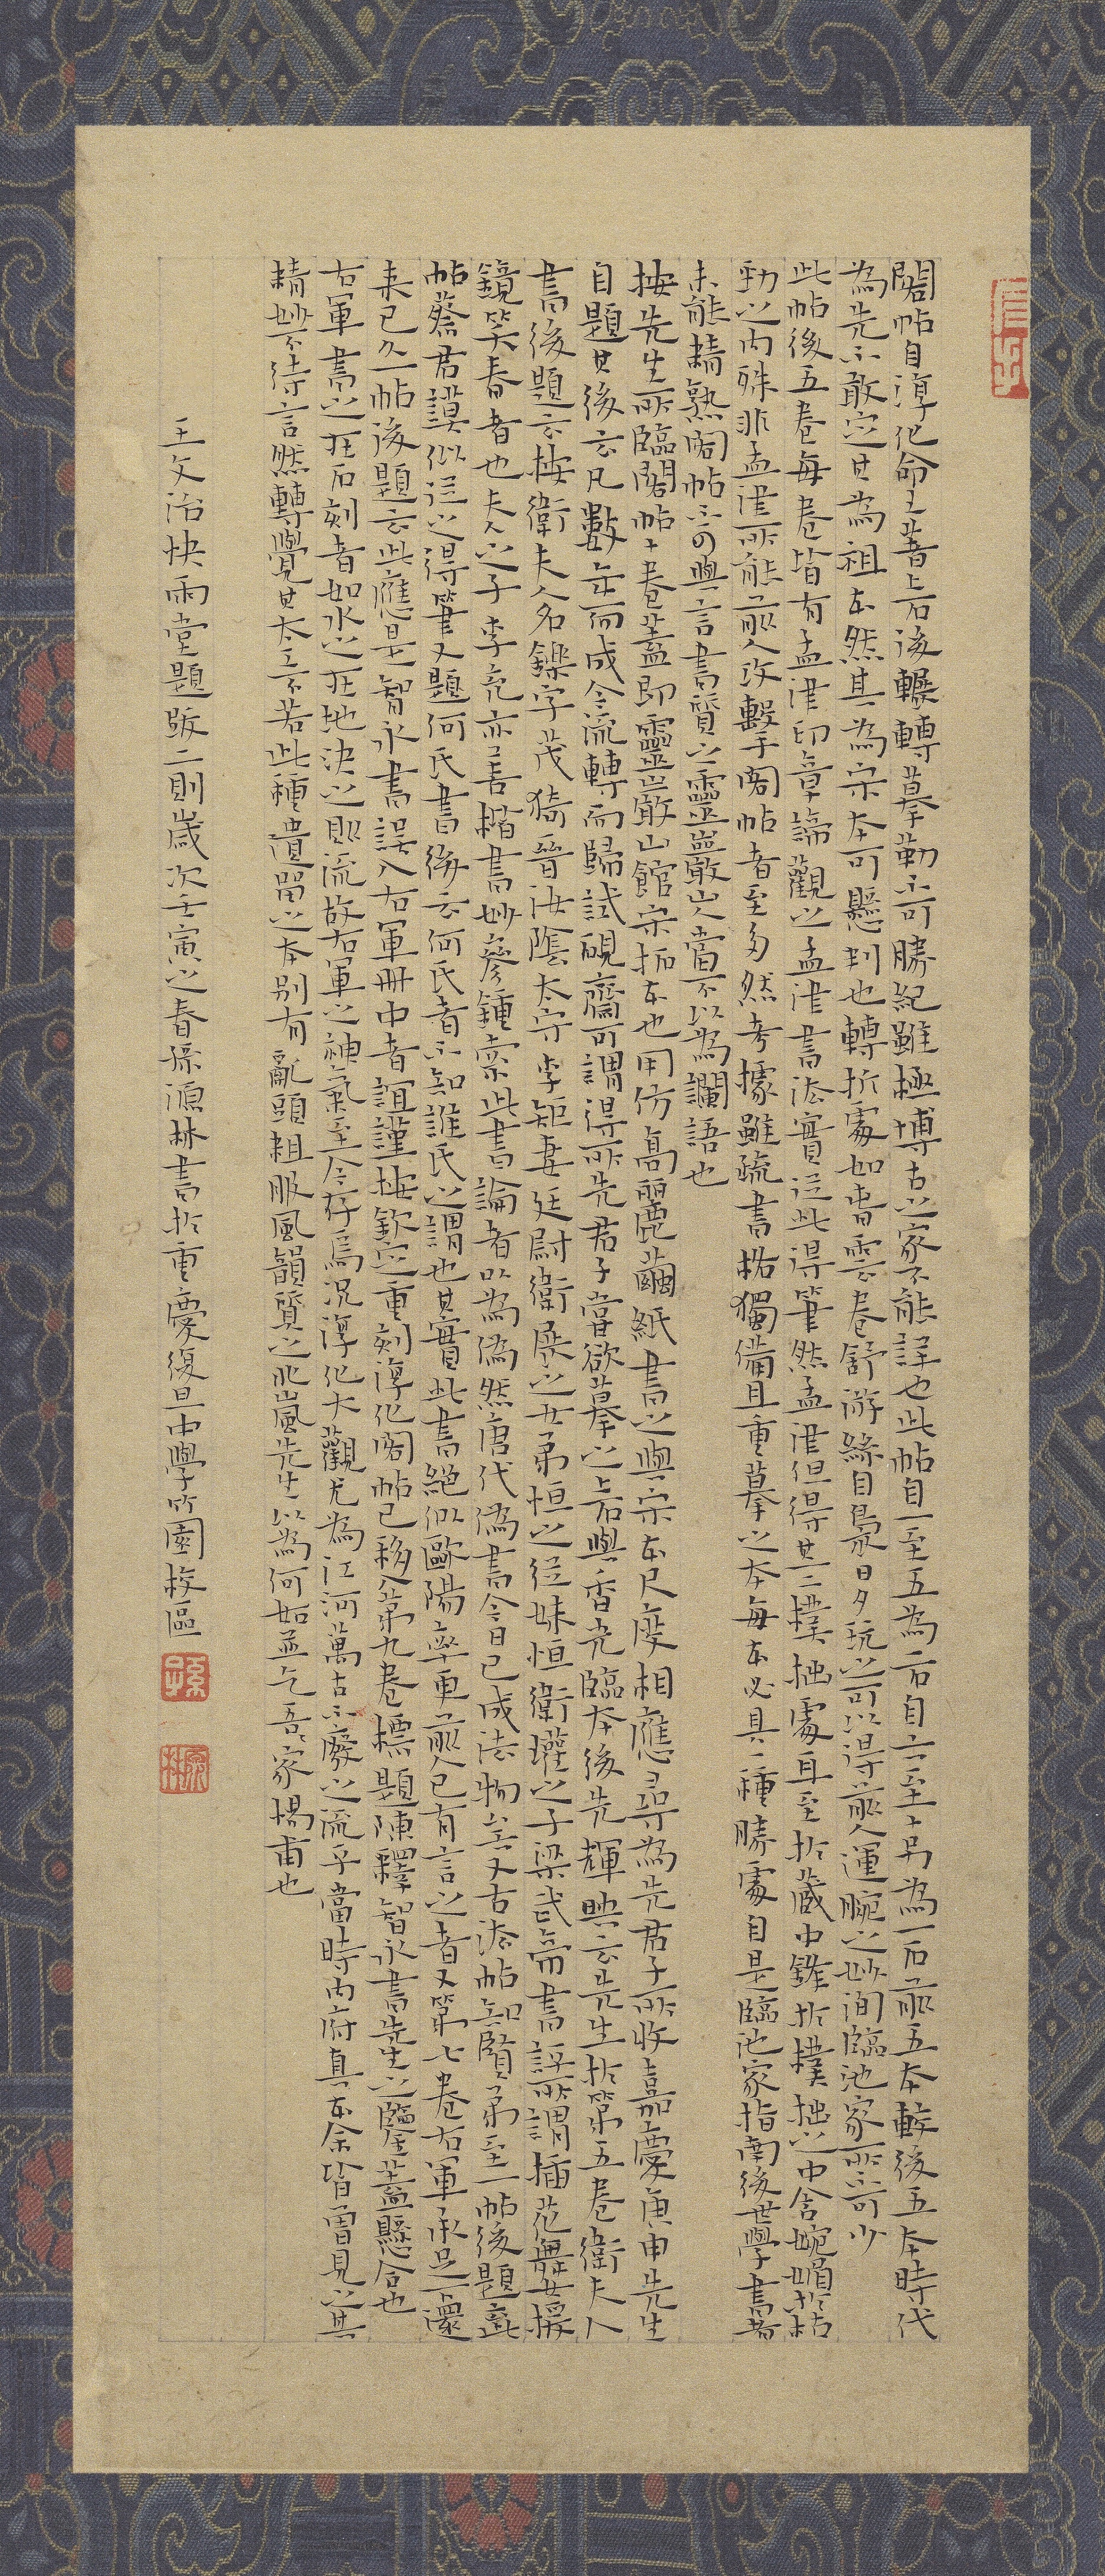 閣帖自淳化命王著上石後輾轉摹勒不可勝紀雖極博古之家不能詳也此帖自一至五為一石自六至十另為一石前五本較後五本時代
為先不敢定其為祖本然其為宋本可懸判也轉折處如春雲卷舒游絲自裊日夕玩之可以得前人運腕之妙洵臨池家所不可少
此帖後五卷每卷皆有孟津印章諦觀之孟津書法實從此得筆然孟津但得其一二樸拙處耳至於藏中鋒於樸拙之中含婉媚於枯
勁之內殊非孟津所能前人攻擊手閣帖者至多然考據雖疏書格獨備且重摹之本每本必具一種勝處自是臨池家指南後世學書者
未能精熟閣帖不可與言書質之靈巖山人當不以為讕語也
按先生所臨閣帖十卷蓋即靈巖山館宋拓本也用仿高麗繭紙書之與宋本尺度相應尋為先君子所收嘉慶庚申先生
自題其後云凡數年而成今流轉而歸試硯齋可謂得所先君子嘗欲摹之上石與香光臨本後先輝映云先生於第五卷衛夫人
書後題云按衛夫人名鑠字茂猗晉汝陰太守李矩妻廷尉衛展之女弟恒之從妹恒衛瓘之子梁武帝書評所謂插花舞女援
鏡笑春者也夫人之子李充亦善楷書妙參鍾索此書論者以為偽然唐代偽書今日已成法物矣又古法帖知賢弟至一帖後題云此
帖蔡君謨似從之得筆又題何氏書後云何氏者不知誰氏之謂也其實此書絕似歐陽率更前人已有言之者又第七卷右軍承足下還
來已久一帖後題云此應是智永書誤入右軍冊中者誼謹按欽定重刻淳化閣帖已移入第九卷標題陳釋智永書先生之鑒蓋懸合也
右軍書之在石刻者如水之在地決之即流故右軍之神氣至今存焉況淳化大觀尤為江河萬古不廢之流乎當時內府真本余皆曾見之其
精妙不待言然轉覺其太工不若此種遺留之本別有亂頭粗服風韻質之叱嵐先生以為何如並乞吾家楊甫也
王文治快雨堂題跋二則歲次壬寅之春孫源林書於重慶復旦中學竹園校區